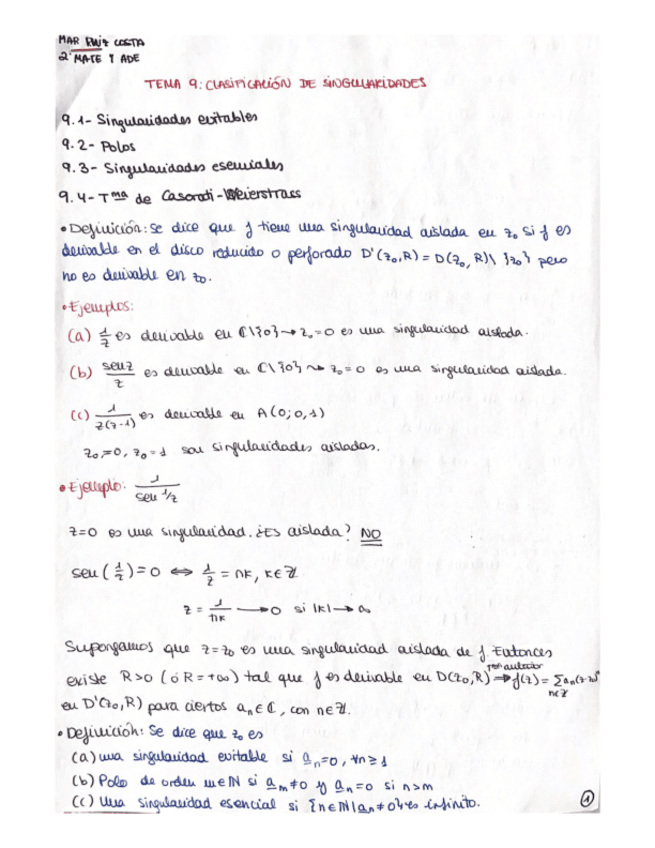 MAR RUIZ COSTA
2º MATE Y ADE
TEMA 9: CLASIFICACIÓN DE SINGULARIDADES
9.1- Singularidades evitables
9.2- Polos
9.3- Singularidades esenciales
9.4- Tᵐᵃ de Casorati-Weierstrass
• Definición: Se dice que f tiene una singularidad aislada en z₀ si f es
derivable en el disco reducido o perforado D'(z₀,R) = D(z₀,R)\{z₀} pero
no es derivable en z₀.
• Ejemplos:
(a) 1/z es derivable en ℂ\{0} → z₀=0 es una singularidad aislada.
(b) senz/z es derivable en ℂ\{0} ⇝ z₀=0 es una singularidad aislada.
(c) 1/z(z-1) es derivable en A(0;0,1)
z₀=0, z₀=1 son singularidades aisladas.
• Ejemplo: 1/sen 1/z
z=0 es una singularidad. ¿Es aislada? NO
sen(1/z)=0 ⇔ 1/z = πk, k∈ℤ
z = 1/πk → 0 si |k| → ∞
Supongamos que z=z₀ es una singularidad aislada de f. Entonces
existe R>0 (ó R=+∞) tal que f es derivable en D(z₀,R) ⇒ f(z) = Σ aₙ(z-z₀)ⁿ n∈ℤ
en D'(z₀,R) para ciertos aₙ∈ℂ, con n∈ℤ.
• Definición: Se dice que z₀ es
(a) una singularidad evitable si a₋ₙ=0, ∀n≥1
(b) Polo de orden m∈ℕ si a₋ₘ≠0 y a₋ₙ=0 si n>m
(c) Una singularidad esencial si {n∈ℕ|a₋ₙ≠0} es infinito.
1